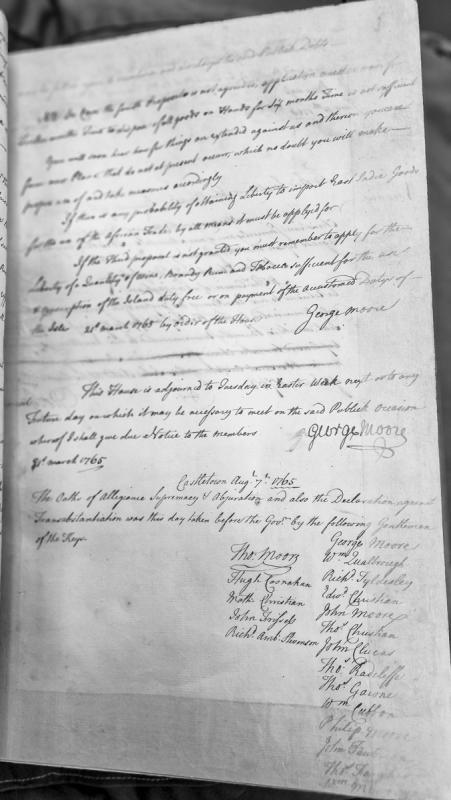 NB In Case the fourth Proposal is not agreed to, application must be made for
Twelve months Time to dispose of all goods on Hands for Six months Time is not sufficient
You will soon hear how far things are extended against us and thereon you can
form new Plans that do not at present occurr, which no doubt you will make
proper use of and take measures accordingly
If there is any probability of obtaining Liberty to import East India Goods
for the use of the African Trade, by all means it must be applyed for
If the Third proposal is not granted you must remember to apply for the
Liberty of a Quantity of Wine, Brandy Rum and Tobacco sufficient for the use
& consumption of the Island duty free or on payment of the accustomed Dutys of
the Isle 21st march 1765 by order of the House
George Moore
This House is adjourned to Tuesday in Easter Week next or to any
further day on which it may be necessary to meet on the said Publick Occasion
whereof I shall give due Notice to the members
George Moore
31st march 1765
Castletown Augt. 7th. 1765
The Oaths of Allegiance Supremacy & Abjuration and also the Declaration against
Transubstantiation was this day taken before the Govr. by the following Gentlemen
of the Keys.
Tho. Moore
Hugh Cosnahan
Matth. Christian
John Frissels
Richd. Ambr. Stevenson
George Moore
Wm. Qualtrough
Richd. Tyldesley
Edwd. Christian
John Moore
Thos. Christian
John Clucas
Thos. Radcliffe
Thos. Gawne
Wm. Cubbon
Philip Moore
John
Thos.